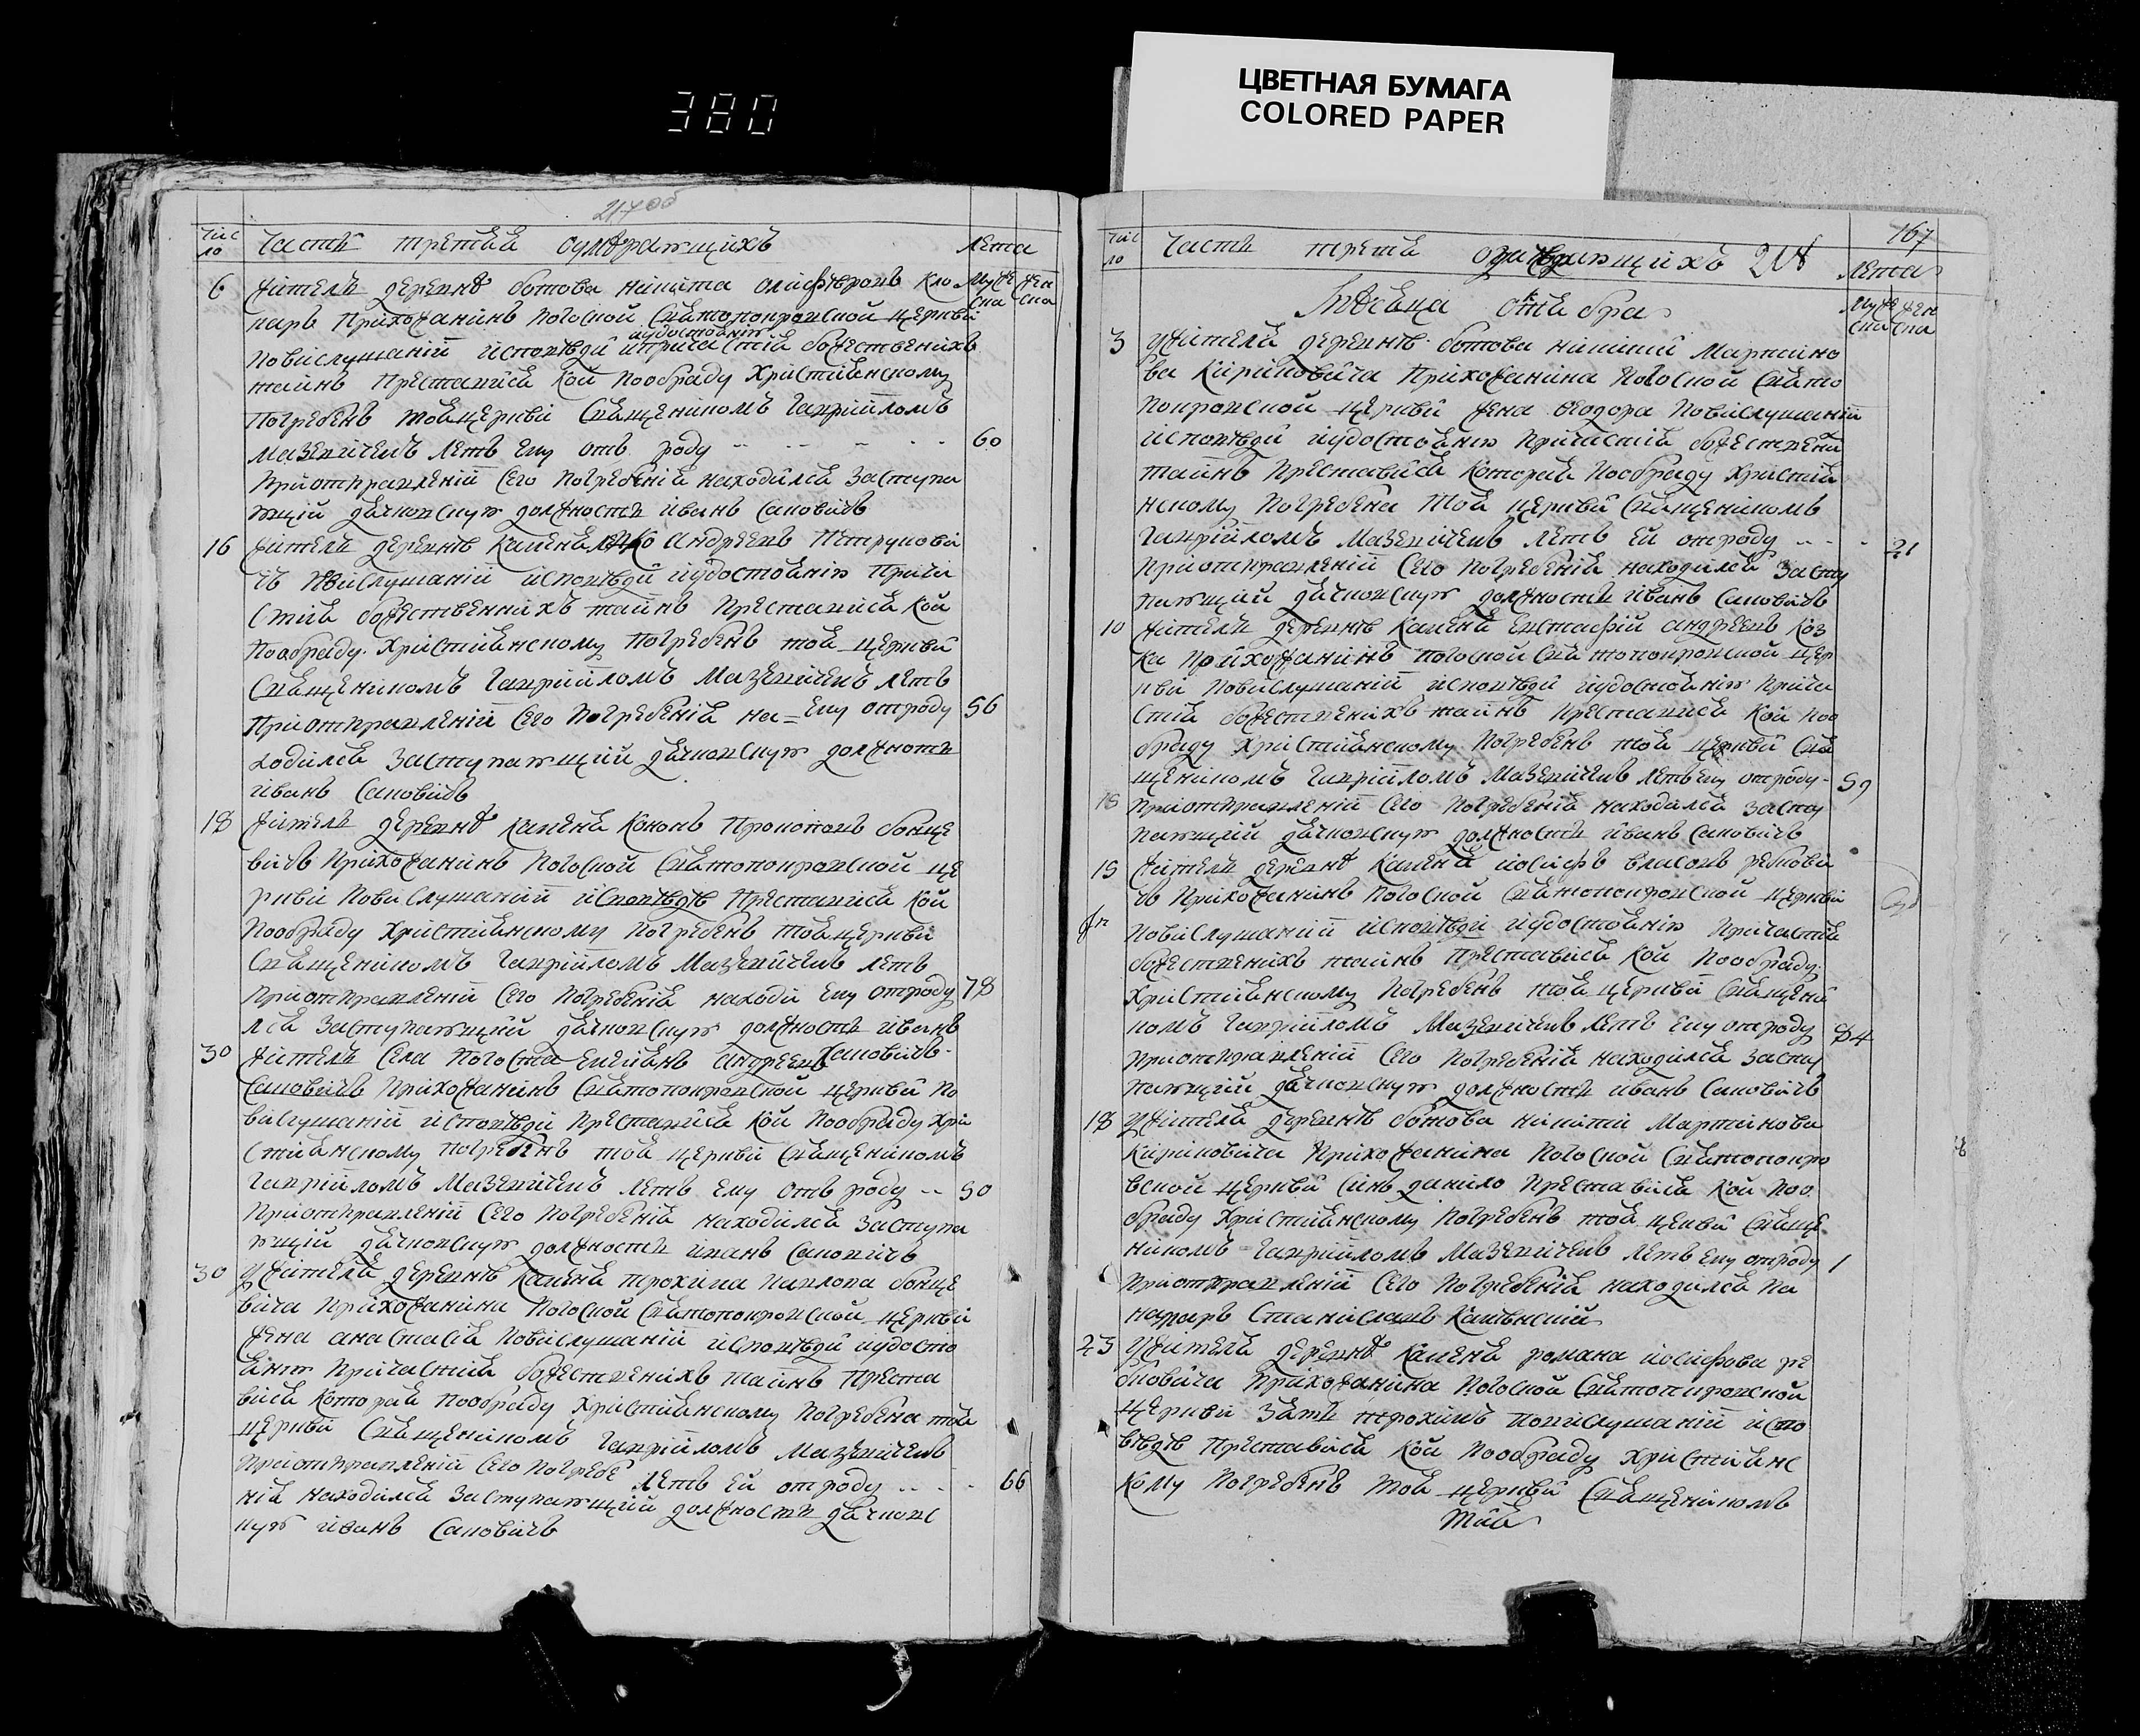 380
ЦВЕТНАЯ БУМАГА
COLORED PAPER
217 об
Чис
ло
Часть третья о умѣрающихъ
Лета
Муже
ска
жен
ска
6
Жітель деревнѣ ботова Нікіта Кло
парь Пріхожанінъ погоской Святопокровской церквы
удостоянію
Повислушаній исповѣди и прічастія божественихъ
таинъ Преставися кой пообраду Хрістіянскому
Погребенъ тоя церкви Священікомъ Гавріиломъ
Мазевічемъ летъ ему отъ роду
60
Приотправленій сего погребенія находился заступа
ющій дячковскую должность іванъ Саковичъ
16
Жітель деревнѣ Каменя Андреевъ Петрукові
чъ Повислушаній исповѣди иудостоянію Прича
стія божественнихъ таинъ Преставися кой
пообраду Хрістіянскому погребенъ тоя церквы
Священікомъ Гавріиломъ Мазевічемъ летъ
Приотправленій сего погребенія на= ему отроду
56
ходился заступающій дячковскую должность
іванъ Саковичъ
18
Жітель деревнѣ Каменя Кононъ Прокоповъ боще
вичъ Пріхожанінъ погоской Святопокровской це
рквы Повислушаній исповѣдѣ Преставися кой
Пообраду Хрістіянскому погребенъ тоя церкви
Священікомъ Гавріиломъ Мазевічемъ летъ
Приотправленій сего погребенія находи ему отроду
78
лся заступающій дячковскую должность іванъ
Саковичъ
30
Жітель Села Погоста Емеліанъ Андреевъ
Саковичъ Пріхожанінъ Святопокровской церквы по
вислушаній исповѣди Преставися кой пообраду Хрі
стіянскому погребенъ тоя церкви Священікомъ
Гавріиломъ Мазевічемъ летъ ему отъ роду
50
Приотправленій сего погребенія находился заступа
ющій дячковскую должность іванъ Саковічъ
30
Ужітеля деревнѣ Каменя трохима Павлова боще
вича Пріхожаніна погоской Святопокровской церквы
жена анастасія повислушаній исповѣди иудосто
янію Причастія божественихъ таинъ Преста
вися которая пообраду Хрістіянскому погребена тоя
церквы Священікомъ Гавріиломъ Мазевічемъ
Приотправленій сего погребе летъ ей отроду
66
нія находился заступающій должность дячковс
кую іванъ Саковичъ
Чис
ло
Часть третья о умѣрающихъ
218
167
Лета
Муже
ска
жен
ска
Месяца октабра
3
Ужітеля деревнѣ ботова Нікіти Мартіно
ва Кіріковича Пріхожаніна погоской Свято
покровской церквы жена Феодора Повислушаній
исповѣди иудостоянію прічастія божествени
таинъ Преставися которая пообраду Хрістія
нскому погребена тоя церквы Священікомъ
Гавріиломъ Мазевічемъ летъ ей отроду
21
Приотправленій сего погребенія находился засту
пающій дячковскую должность іванъ Саковичъ
10
Жітель деревнѣ Каменя Евстафій андреевъ Коз
ка Пріхожанінъ погоской Святопокровской цер
квы повислушаній исповѣди иудостоянію прича
стія божественихъ таинъ Преставися кой поо
браду Хрістіянскому погребенъ тоя церквы Свя
щенікомъ Гавріиломъ Мазевічемъ летъ ему отроду
59
15
Приотправленій сего погребенія находился засту
пающій дячковскую должность іванъ Саковичъ
15
Жітель деревнѣ Каменя іосифъ власовъ ребкові
чъ Пріхожанінъ погоской Святопокровской церквы
Повислушаній исповѣди иудостоянію Прічастія
божественихъ таинъ Преставися кой пообраду
Хрістіянскому погребенъ тоя церквы Священі
комъ Гавріиломъ Мазевічемъ летъ ему отроду
84
Приотправленій сего погребенія находился засту
пающій дячковскую должность іванъ Саковичъ
18
Ужітеля деревнѣ ботова нікіти Мартінова
Кіріковича Пріхожаніна погоской Святопокро
вской церквы сынъ данило Преставися кой поо
браду Хрістіянскому погребенъ тоя церквы Свяще
нікомъ Гавріиломъ Мазевічемъ летъ ему отроду
1
Приотправленій сего погребенія находился по
номарь Станиславъ
23
Ужітеля деревнѣ Каменя романа іосифова ре
бковича Пріхожаніна погоской Святопокровской
церкви зять трохимъ повислушаній испо
вѣдѣ Преставися кой пообраду Хрістіянс
кому погребенъ тоя церквы Священікомъ